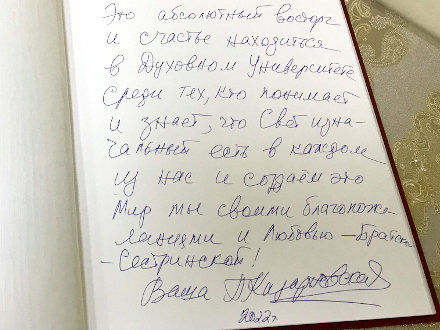 Это абсолютный восторг
и счастье находиться
в Духовном Университете
среди тех, кто понимает
и знает, что Свет изна-
чальный есть в каждом
из нас и создаём это
Мир мы своими благопоже-
ланиями и Любовью – Братско-
- Сестринской!
Ваша
2022г.